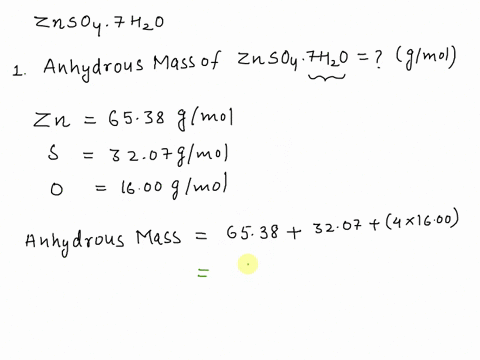 ZnSO₄.7H₂O
1. Anhydrous Mass of ZnSO₄.7H₂O = ? (g/mol)
Zn = 65.38 g/mol
S = 32.07 g/mol
O = 16.00 g/mol
Anhydrous Mass = 65.38 + 32.07 + (4×16.00)
=